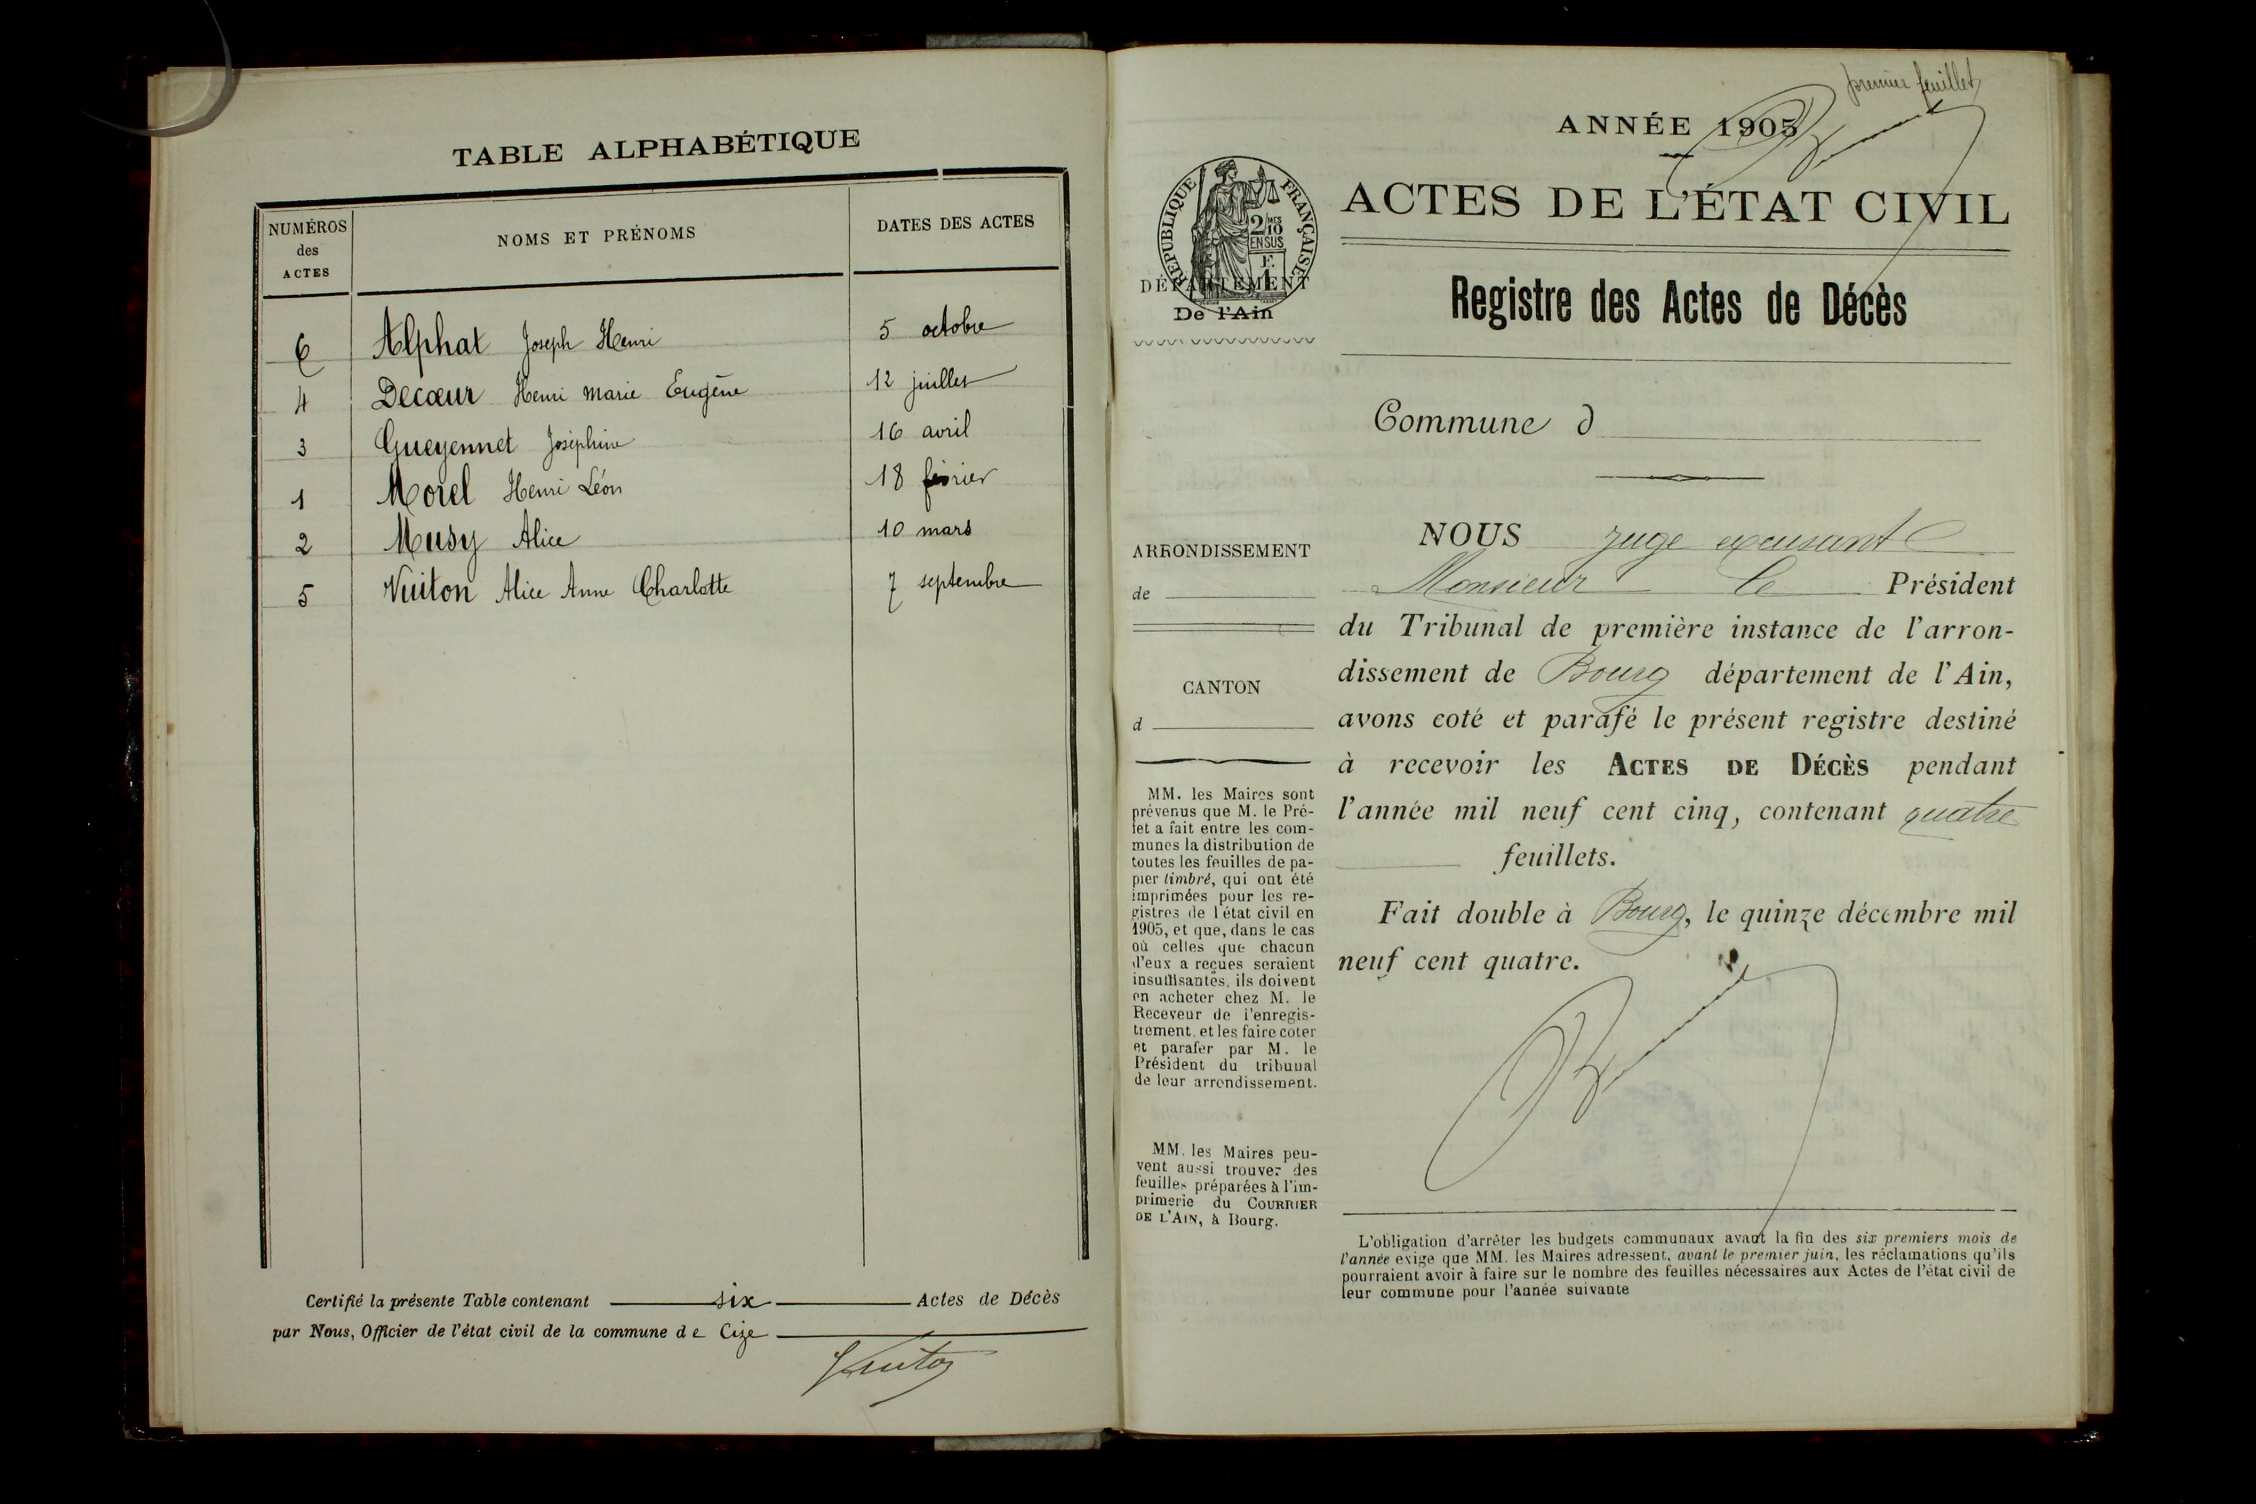 TABLE ALPHABÉTIQUE
NUMÉROS des ACTES NOMS ET PRÉNOMS DATES DES ACTES
6 Alphat Joseph Henri 5 octobre
4 Decœur Henri Marie Eugène 12 juillet
3 Gueyennet Joséphine 16 avril
1 Morel Henri Léon 18 février
2 Musy Alice 10 mars
5 Vuiton Alice Anne Charlotte 7 septembre
Certifié la présente Table contenant six Actes de Décès
par Nous, Officier de l'état civil de la commune de Cize
premier feuillet
ANNÉE 1905
ACTES DE L'ÉTAT CIVIL
RÉPUBLIQUE FRANÇAISE
2 MES
10
EN SUS
F.
1
DÉPARTEMENT
De l'Ain
Registre des Actes de Décès
Commune d
ARRONDISSEMENT
de
CANTON
d
MM. les Maires sont
prévenus que M. le Pré-
fet a fait entre les com-
munes la distribution de
toutes les feuilles de pa-
pier timbré, qui ont été
imprimées pour les re-
gistres de l'état civil en
1905, et que, dans le cas
où celles que chacun
d'eux a reçues seraient
insuffisantes, ils doivent
en acheter chez M. le
Receveur de l'enregis-
trement, et les faire coter
et parafer par M. le
Président du tribunal
de leur arrondissement.
MM. les Maires peu-
vent aussi trouver des
feuilles préparées à l'im-
primerie du COURRIER
DE L'AIN, à Bourg.
NOUS juge excusant
Monsieur le Président
du Tribunal de première instance de l'arron-
dissement de Bourg département de l'Ain,
avons coté et parafé le présent registre destiné
à recevoir les ACTES DE DÉCÈS pendant
l'année mil neuf cent cinq, contenant quatre
feuillets.
Fait double à Bourg, le quinze décembre mil
neuf cent quatre.
L'obligation d'arrêter les budgets communaux avant la fin des six premiers mois de
l'année exige que MM. les Maires adressent, avant le premier juin, les réclamations qu'ils
pourraient avoir à faire sur le nombre des feuilles nécessaires aux Actes de l'état civil de
leur commune pour l'année suivante